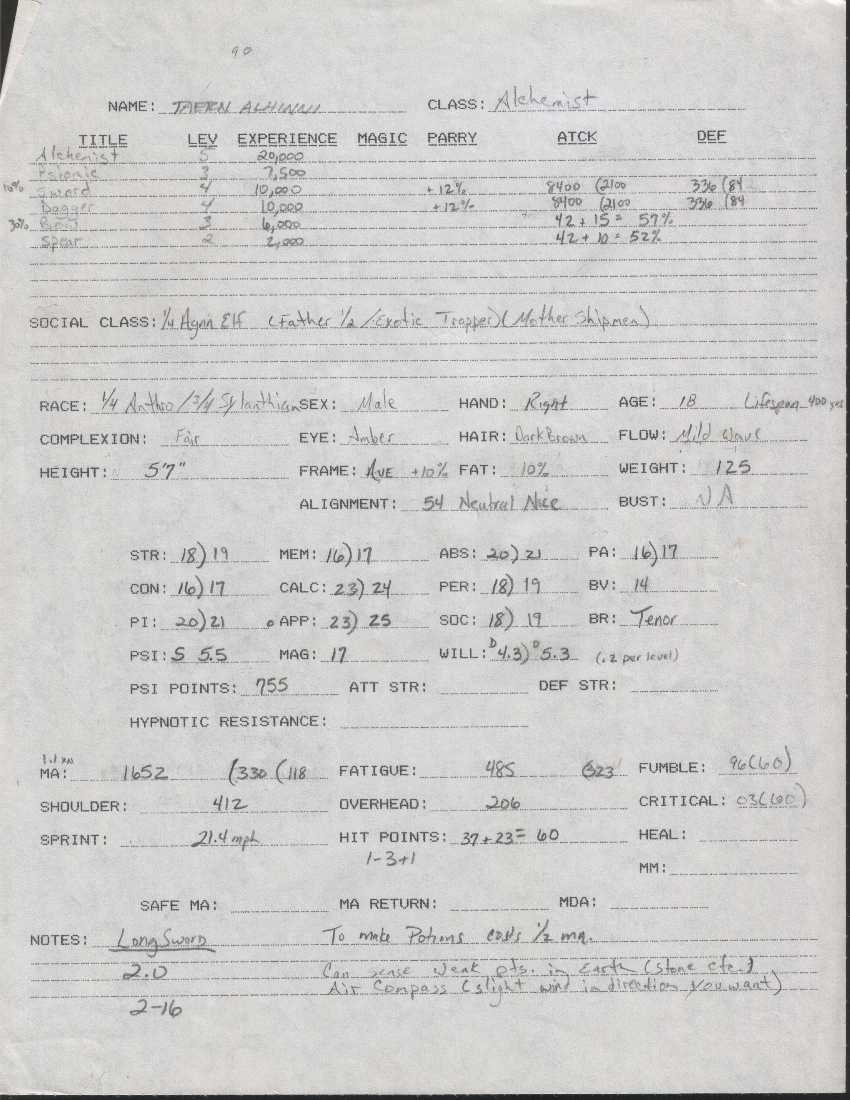 90
NAME: TAERN ALHINNI CLASS: Alchemist
TITLE LEV EXPERIENCE MAGIC PARRY ATCK DEF
Alchemist 5 20,000
Psionic 3 7,500
10% Sword 4 10,000 +12% 8400 (2100 336 (84
Dagger 4 10,000 +12% 8400 (2100 336 (84
30% Bow 3 6,000 42 + 15 = 57%
Spear 2 2,000 42 + 10 = 52%
SOCIAL CLASS: 1/4 Agnn Elf (Father 1/2 / Exotic Trapper) (Mother Shipmen)
RACE: 1/4 Anthro / 3/4 Sylanthian SEX: Male HAND: Right AGE: 18 Lifespan 400 yrs
COMPLEXION: Fair EYE: Amber HAIR: Dark Brown FLOW: Mild Wave
HEIGHT: 5'7" FRAME: AVE +10% FAT: 10% WEIGHT: 125
ALIGNMENT: 54 Neutral Nice BUST: NA
STR: 18) 19 MEM: 16) 17 ABS: 20) 21 PA: 16) 17
CON: 16) 17 CALC: 23) 24 PER: 18) 19 BV: 14
PI: 20) 21 APP: 23) 25 SOC: 18) 19 BR: Tenor
PSI: S 5.5 MAG: 17 WILL: D 4.3) D 5.3 (.2 per level)
PSI POINTS: 755 ATT STR: DEF STR:
HYPNOTIC RESISTANCE:
MA: 1652 (330 (118 FATIGUE: 485 (323 FUMBLE: 96(60)
SHOULDER: 412 OVERHEAD: 206 CRITICAL: 03(60)
SPRINT: 21.4 mph HIT POINTS: 37 + 23 = 60 HEAL:
1-3+1
MM:
SAFE MA: MA RETURN: MDA:
NOTES: Long Sword To make Potions costs 1/2 ma.
2.0 Can sense weak pts. in Earth (stone etc.)
Air Compass (slight wind in direction you want)
2-16